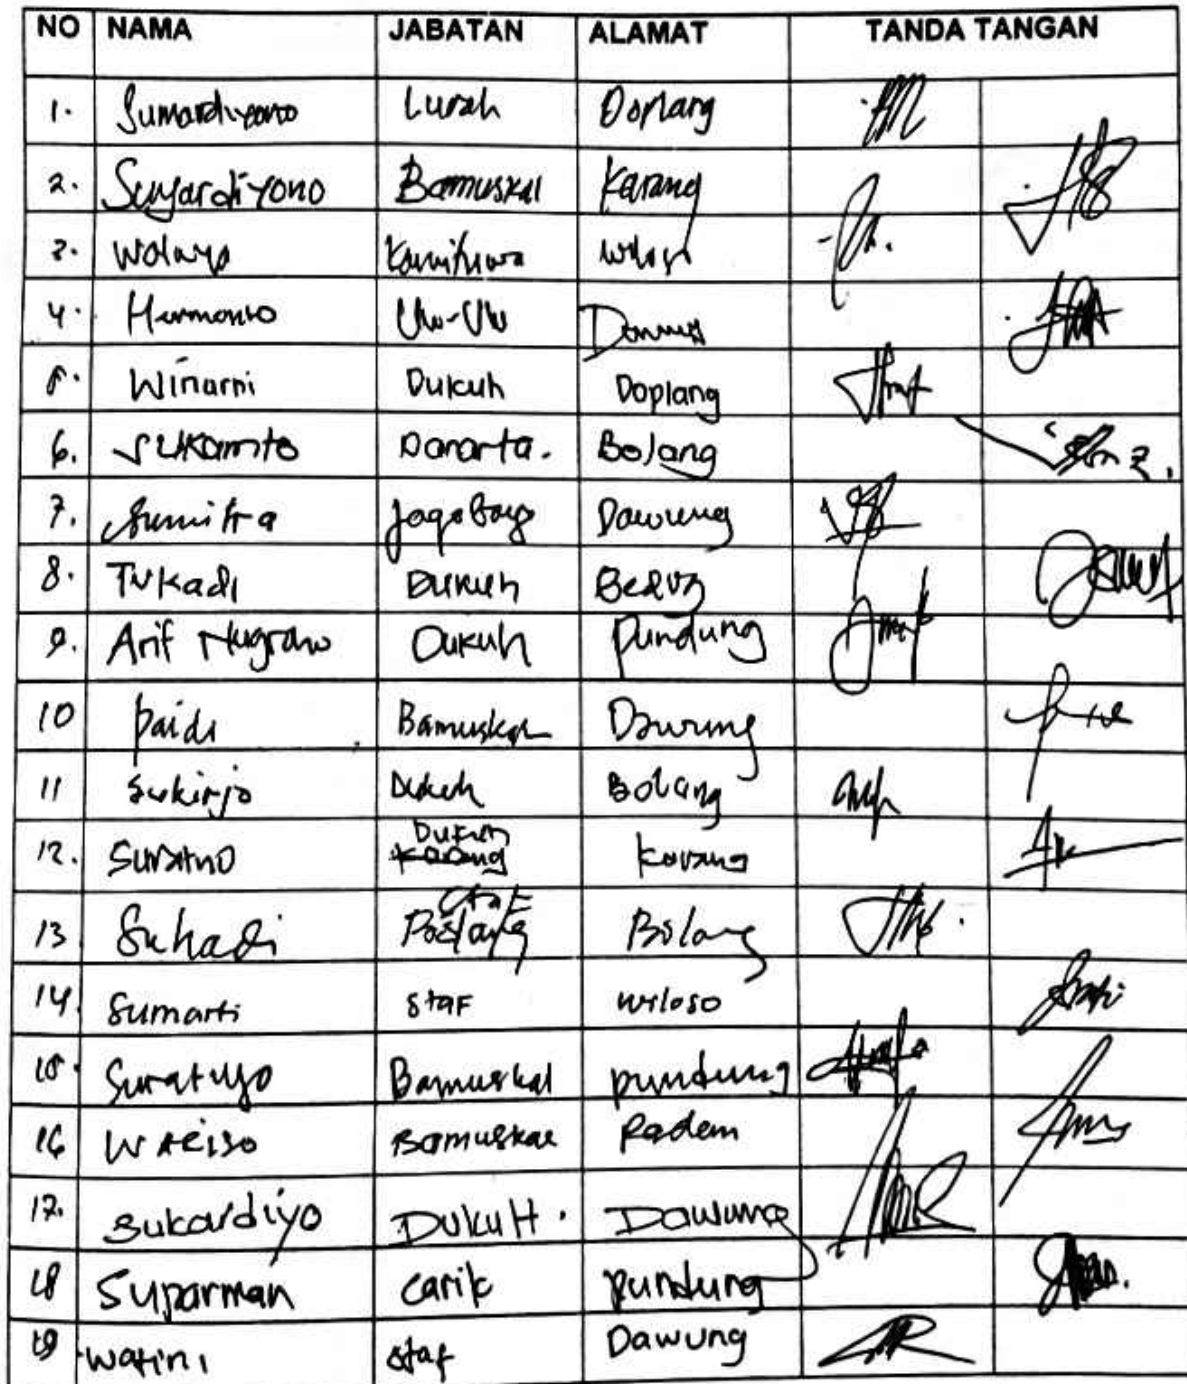 NO NAMA JABATAN ALAMAT TANDA TANGAN
1. Sumardiyono Lurah Doplang
2. Suyardiyono Bamuskal Karang
3. Waluyo Kamituwa Wiloso
4. Hermanto Ulu-Ulu Dawung
5. Winarni Dukuh Doplang
6. Sukamto Danarta. Bolang
7. Sumitra Jogoboyo Dawung
8. Tukadi Dukuh
9. Arif Nugroho Dukuh Pundung
10 Paidi Bamuskal Dawung
11 Sukirjo Dukuh Bolang
12. Suratno Dukuh Karang Karang
13 Suhadi Staf Bolang
14. Sumarti Staf Wiloso
15. Suratuyo Bamuskal Pundung
16 Bamuskal Padem
17. Sukardiyo DukuH. Dawung
18 Suparman Carik Pundung
19 Watini Staf Dawung